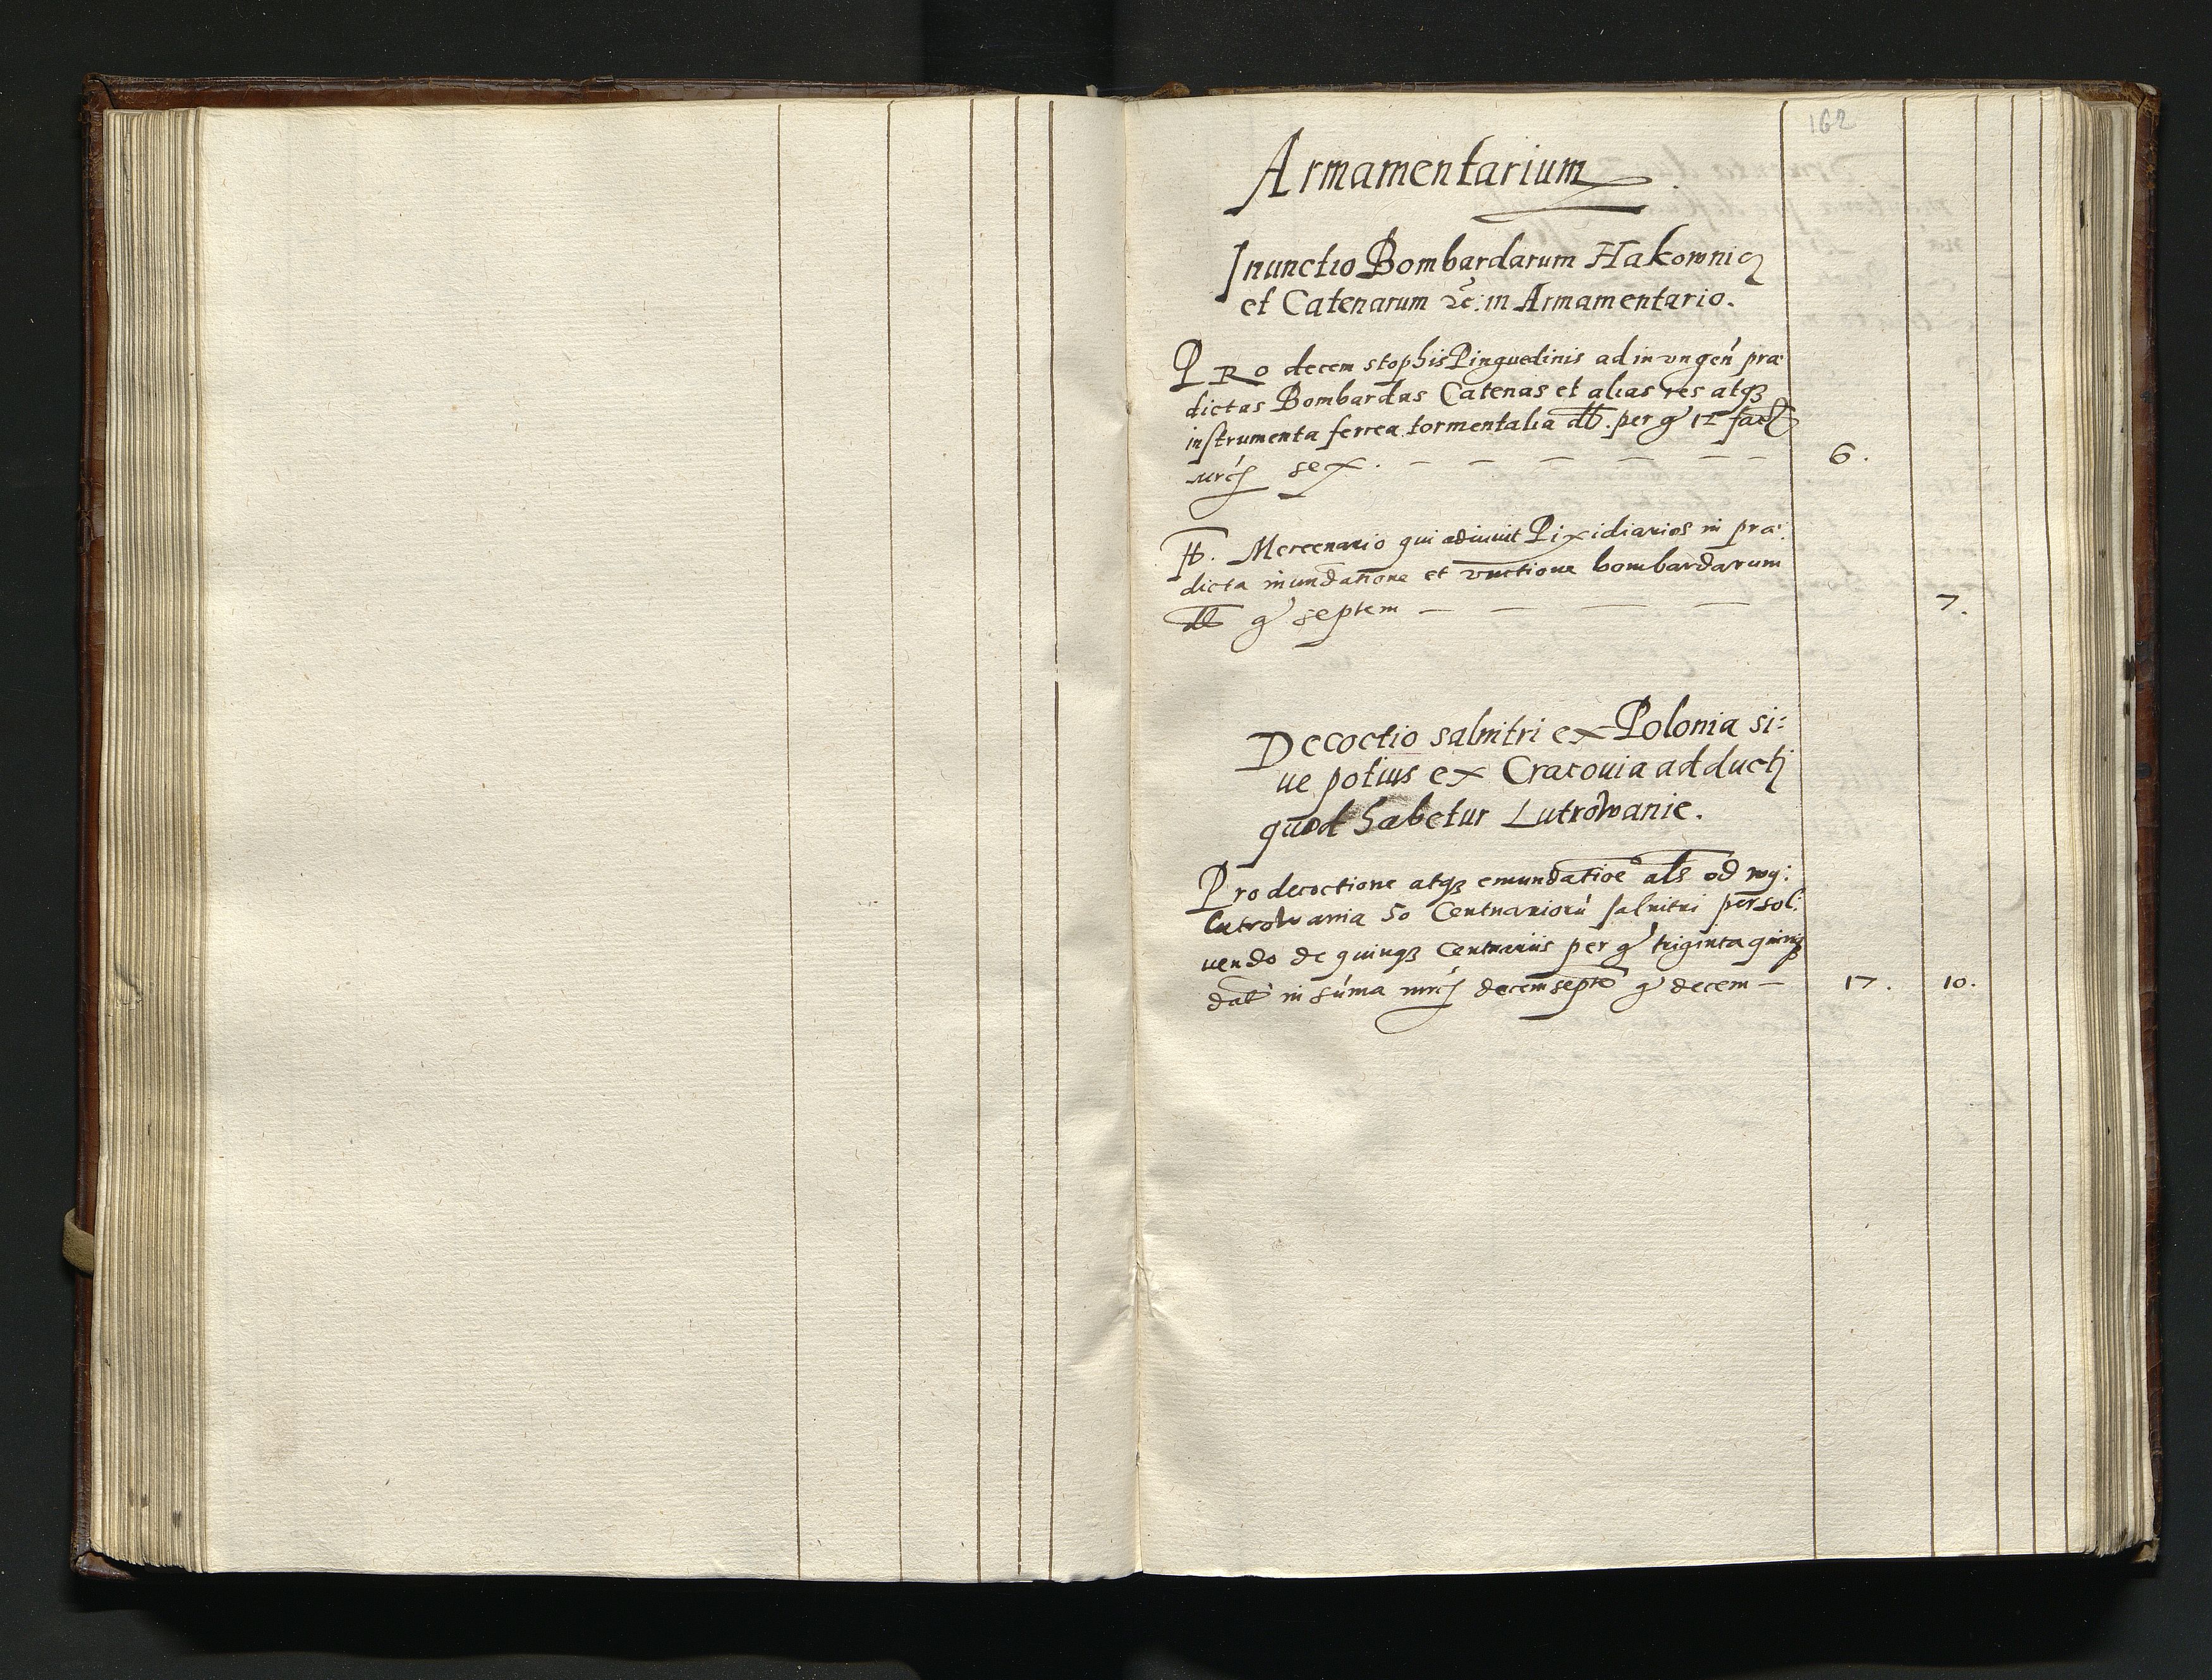 162
Armamentarium
Inunctio Bombardarum Hakownic
et Catenarum &c: in Armamentario.
PRo decem stophis Pinguedinis ad in vngen' præ
dictas Bombardas Catenas et alias res atqꝫ
instrumenta ferrea tormentalia dt. per g' 12 facit
mrcj sex. — — — — — — 6.
It. Mercenario qui adiuuit Pixidiarios in præ:
dicta mundatione et vnctione bombardarum
dt g' septem — — — — 7.
Decoctio salnitri ex Polonia si:
ue potius ex Cracouia adducti
quod habetur Lutrowanie.
Pro decoctione atqꝫ emundatioe als od wy:
lutrowania 50 Centnarioru salnitri persol:
uendo de quinqꝫ Centnariis per g' triginta quinqꝫ
dat in suma mrcj decemsepte g' decem — 17. 10.